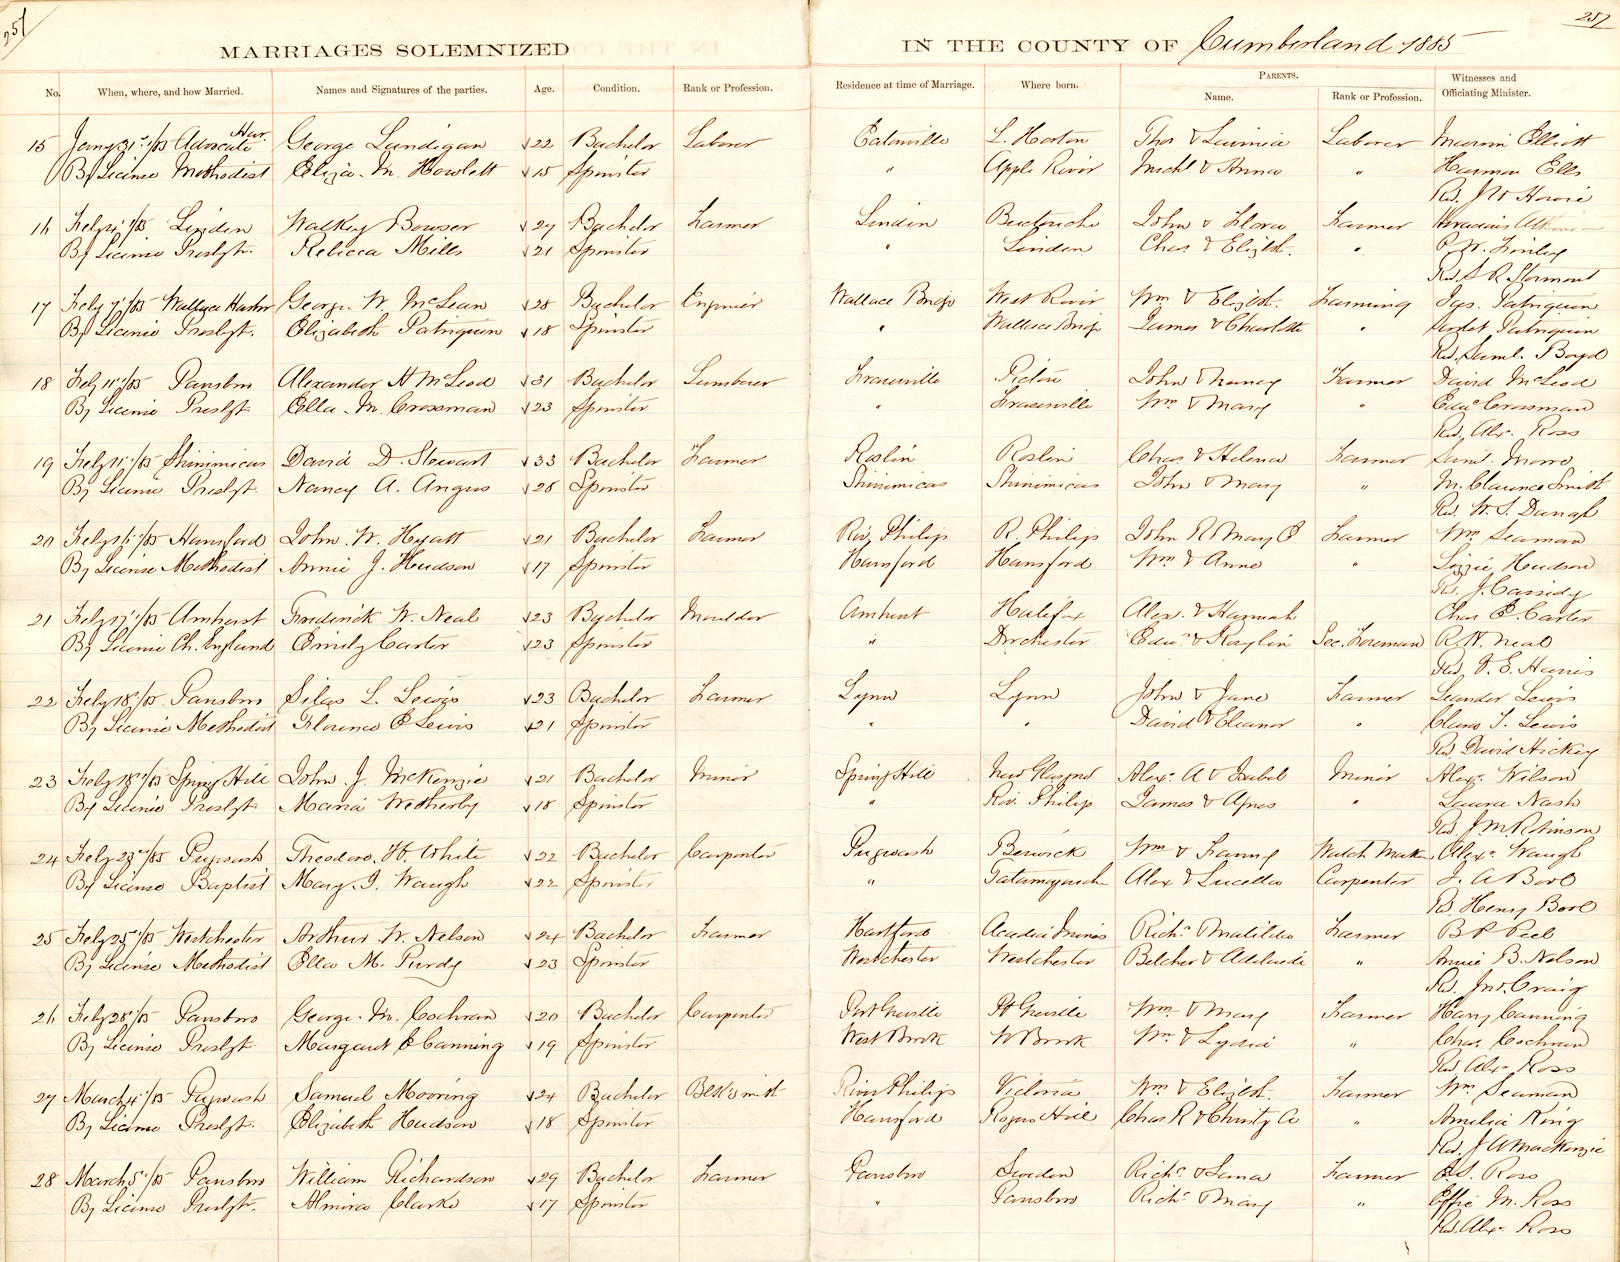 257
257
MARRIAGES SOLEMNIZED IN THE COUNTY OF Cumberland 1885
No. When, where, and how Married. Names and Signatures of the parties. Age. Condition. Rank or Profession. Residence at time of Marriage. Where born. PARENTS. Name. Rank or Profession. Witnesses and Officiating Minister.
15 Jany 31st/85 Advocate Har. George Landigan 22 Bachelor Laborer Eatonville L. Horton Thos & Laminia Laborer Elliott
By License Methodist Eliza M. Howlett 15 Spinster " Apple River Michl. & Anna " Harmon Ells
Rd. J W Howie
16 Feby 1/85 Linden Bowser 27 Bachelor Farmer Linden Buctouche John & Flora Farmer
By License Presbyt. Rebecca Mills 21 Spinster " Linden Chas. & Elizbt. " P. W. Finley
Rd. S R Stormont
17 Feby 7/85 Wallace Harbor George W. McLean 28 Bachelor Engineer Wallace Bridge West River Wm & Elizbt. Farming Patriquin
By License Presbyt. Elizabeth Patriquin 18 Spinster " Wallace Bridge James & Charlotte " Patriquin
Rd. Saml. Boyd
18 Feby 11/85 Parrsboro Alexander H McLeod 31 Bachelor Lumberer Fraserville Pictou John & Nancy Farmer David McLeod
By License Presbyt. Ella M. Crossman 23 Spinster " Fraserville Wm & Mary " Edwd Crossman
Rd. Alex. Ross
19 Feby 11/85 Shinimicas David D. Stewart 33 Bachelor Farmer Roslin Roslin Chas & Helena Farmer Saml.
By License Presbyt. Nancy A. Angus 28 Spinster Shinimicas Shinimicas John & Mary " M. Clarence Smith
Rd. W. S. Darragh
20 Feby 16/85 Hansford John W. Hyatt 21 Bachelor Farmer Riv. Philip R. Philip John R Mary E Farmer Wm Seaman
By License Methodist Annie J. Hudson 17 Spinster Hansford Hansford Wm & Anne " Lizzie Hudson
Rd. J. Cassidy
21 Feby 17/85 Amherst Frederick W. Neal 23 Bachelor Moulder Amherst Halifax Alex. & Hannah Chas E. Carter
By License Ch. England Emily Carter 23 Spinster " Dorchester Edwd & Sec. Foreman R. W. Neal
Rd. V. E. Harris
22 Feby 18/85 Parrsboro Silas L. Lewis 23 Bachelor Farmer Lynn Lynn John & Jane Farmer Leander Lewis
By License Methodist Florence E Lewis 21 Spinster " " David & Eleanor " Clara T. Lewis
Rd David Hickey
23 Feby 18/85 Spring Hill John J. McKenzie 21 Bachelor Miner Spring Hill New Glasgow Alexr A & Isabel Miner Alexr Wilson
By License Presbyt. Maria Wetherby 18 Spinster " Riv. Philip James & Agnes " Laura Nash
Rd. J M Robinson
24 Feby 23/85 Pugwash Theodore H. White 22 Bachelor Carpenter Pugwash Berwick Wm & Fanny Watch Maker Alexr Waugh
By License Baptist Mary I. Waugh 22 Spinster " Tatamagouche Alex & Lucella Carpenter J. A Bool
Rd Henry Bool
25 Feby 25/85 Westchester Arthur W. Nelson 24 Bachelor Farmer Hartford Acadia Mines Richd Matilda Farmer B P Peel
By License Methodist Ella M. Purdy 23 Spinster Westchester Westchester Belcher & Adelaide " Annie B. Nelson
Rd. Jno. Craig
26 Feby 28/85 Parrsboro George M. Cochran 20 Bachelor Carpenter Port Greville Pt Greville Wm & Mary Farmer Harry Canning
By License Presbyt. Margaret E Canning 19 Spinster West Brook W Brook Wm & Lydia " Chas. Cochran
Rd Alex Ross
27 March 4/85 Pugwash Samuel Mooring 24 Bachelor Blksmith River Philip Victoria Wm & Elizbt. Farmer Wm Seaman
By License Presbyt. Elizabeth Hudson 18 Spinster Hansford Rogers Hill Chas R & Christy A " Amelia King
Rd. J A MacKenzie
28 March 5/85 Parrsboro William Richardson 29 Bachelor Farmer Parrsboro Sweden Richd & Lena Farmer Ross
By License Presbyt. Almira Clarke 17 Spinster " Parrsboro Richd & Mary " Effie M. Ross
Rd. Alex. Ross